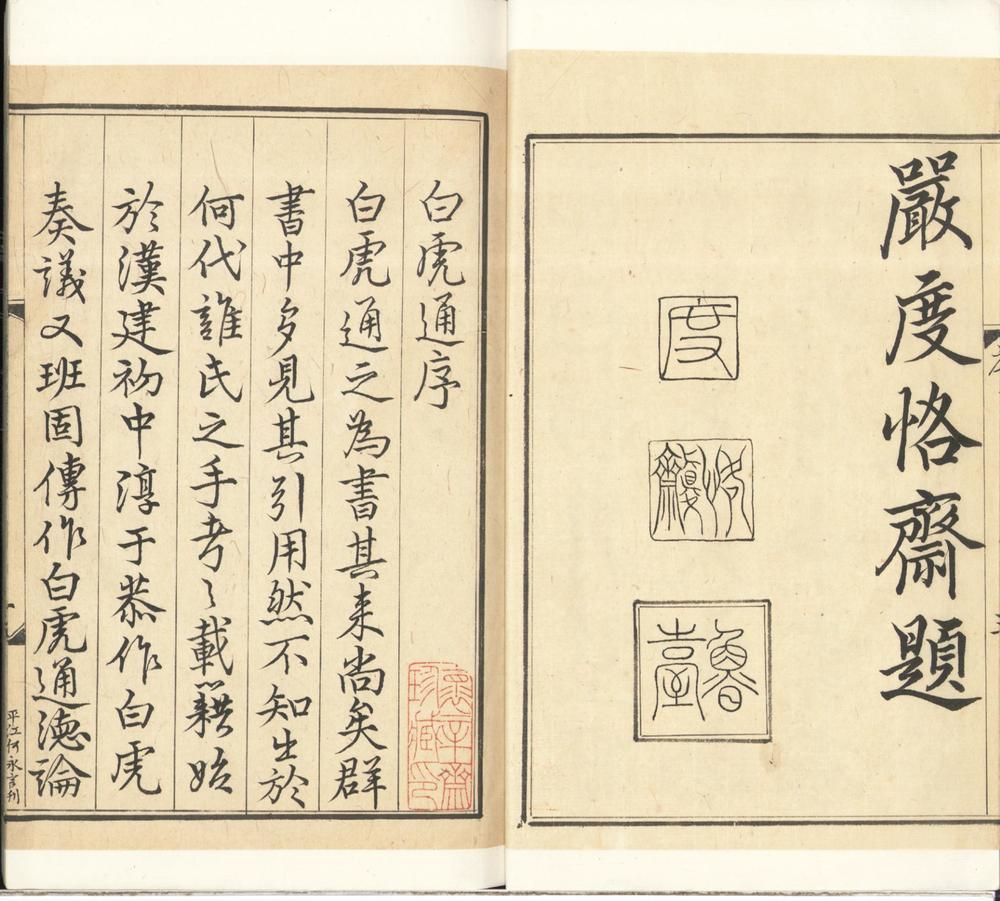 嚴度恪齋題
度
恪齋
魯臺
白虎通序
白虎通之為書其来尚矣群
書中多見其引用然不知出於
何代誰氏之手考之載籍始
於漢建初中淳于恭作白虎
奏議又班固傳作白虎通德論
平江何永言刊